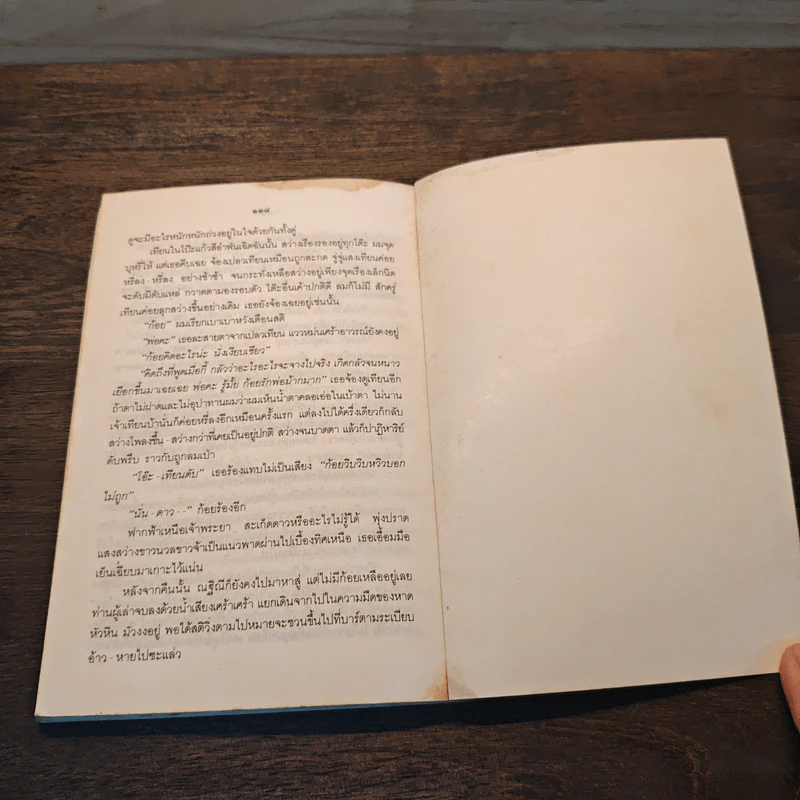 ๑๑๘
ดูจะมีอะไรหนักหนักถ่วงอยู่ในใจด้วยกันทั้งคู่
เทียนในโป๊ะแก้วสีอำพันเฉิดฉันนั้น สว่างเรืองรองอยู่ทุกโต๊ะ ผมจุด
บุหรี่ให้ แต่เธอคีบเฉย จ้องเปลวเทียนเหมือนถูกสะกด จู่จู่แสงเทียนค่อย
หรี่ลง - หรี่ลง อย่างช้าช้า จนกระทั่งเหลือสว่างอยู่เพียงจุดเรืองเล็กนิด
จะดับมิดับแหล่ กวาดตามองรอบตัว โต๊ะอื่นเค้าปกติดี ลมก็ไม่มี สักครู่
เทียนค่อยลุกสว่างขึ้นอย่างเดิม เธอยังจ้องเฉยอยู่เช่นนั้น
“ก้อย” ผมเรียกเบาเบาหวังเตือนสติ
“พ่อคะ” เธอละสายตาจากเปลวเทียน แววหม่นเศร้าอาวรณ์ยังคงอยู่
“ก้อยคิดอะไรน่ะ นั่งเงียบเชียว”
“คิดถึงที่พูดเมื่อกี้ กลัวว่าอะไรอะไรจะจางไปจริง เกิดกลัวจนหนาว
เยือกขึ้นมาเฉยเฉย พ่อคะ รู้มั้ย ก้อยรักพ่อม้ากมาก” เธอจ้องดูเทียนอีก
ถ้าตาไม่ฝาดและไม่อุปาทานผมว่าผมเห็นน้ำตาคลอเอ่อในเบ้าตา ไม่นาน
เจ้าเทียนบ้านั่นก็ค่อยหรี่ลงอีกเหมือนครั้งแรก แต่ลงไปได้ครึ่งเดียวก็กลับ
สว่างโพลงขึ้น - สว่างกว่าที่เคยเป็นอยู่ปกติ สว่างจนบาดตา แล้วก็ปาฏิหาริย์
ดับพรึบ ราวกับถูกลมเป่า
“โอ๊ะ - เทียนดับ” เธอร้องแทบไม่เป็นเสียง “ก้อยวิบวิบหวิวบอก
ไม่ถูก”
“นั่น - ดาว - -” ก้อยร้องอีก
ฟากฟ้าเหนือเจ้าพระยา สะเก็ดดาวหรืออะไรไม่รู้ได้ พุ่งปราด
แสงสว่างขาวนวลขาวจ้าเป็นแนวพาดผ่านไปเบื้องทิศเหนือ เธอเอื้อมมือ
เย็นเฉียบมาเกาะไว้แน่น
หลังจากคืนนั้น ณฐิณีก็ยังคงไปมาหาสู่ แต่ไม่มีก้อยเหลืออยู่เลย
ท่านผู้เล่าจบลงด้วยน้ำเสียงเศร้าเศร้า แยกเดินจากไปในความมืดของหาด
หัวหิน มัวงงอยู่ พอได้สติวิ่งตามไปหมายจะชวนขึ้นไปที่บาร์ตามระเบียบ
อ้าว - หายไปซะแล่ว